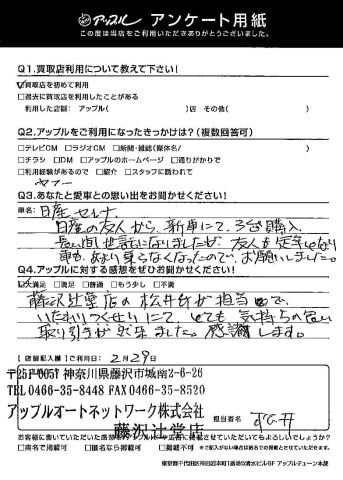 アップル アンケート用紙
この度は当店をご利用いただきありがとうございました。
Q1.買取店利用について教えて下さい!
☑買取店を初めて利用
□過去に買取店を利用したことがある
利用した店舗: アップル( )店 その他( )
Q2.アップルをご利用になったきっかけは?(複数回答可)
□テレビCM □ラジオCM □新聞・雑誌(媒体名/ )
□チラシ □DM □アップルのホームページ □通りがかりで
□利用経験があるので □紹介 □スタッフに誘われて
ヤフー
Q3.あなたと愛車との思い出をお聞かせください!
車名: 日産セレナ
日産の友人から、新車にて、3台購入
長い間世話になりましたが、友人も定年になり
車も、あまり乗らなくなったので、お願いしました。
Q4.アップルに対する感想をぜひお聞かせください!
☑大満足 □満足 □普通 □もう少し □不満
藤沢辻堂店の松井氏が担当で、
いたれりつくせりにて、とても気持ちの良い
取り引きが出来ました。感謝します。
【店舗記入欄】ご利用日: 2月29日
〒251-0057 神奈川県藤沢市城南2-6-26
TEL0466-35-8448 FAX0466-35-8520
アップルオートネットワーク株式会社
藤沢辻堂店
担当者名 松井
お客様に書いていただいた感想をアップル
広告に掲載させていただいてもよろしいでしょうか?
□実名で掲載可 □匿名なら掲載可 □掲載不可 ※ご記入がない場合は匿名での掲載とさせていただきます。
東京都千代田区神田岩本町1番地岩本町ビル6F アップルチェーン本部